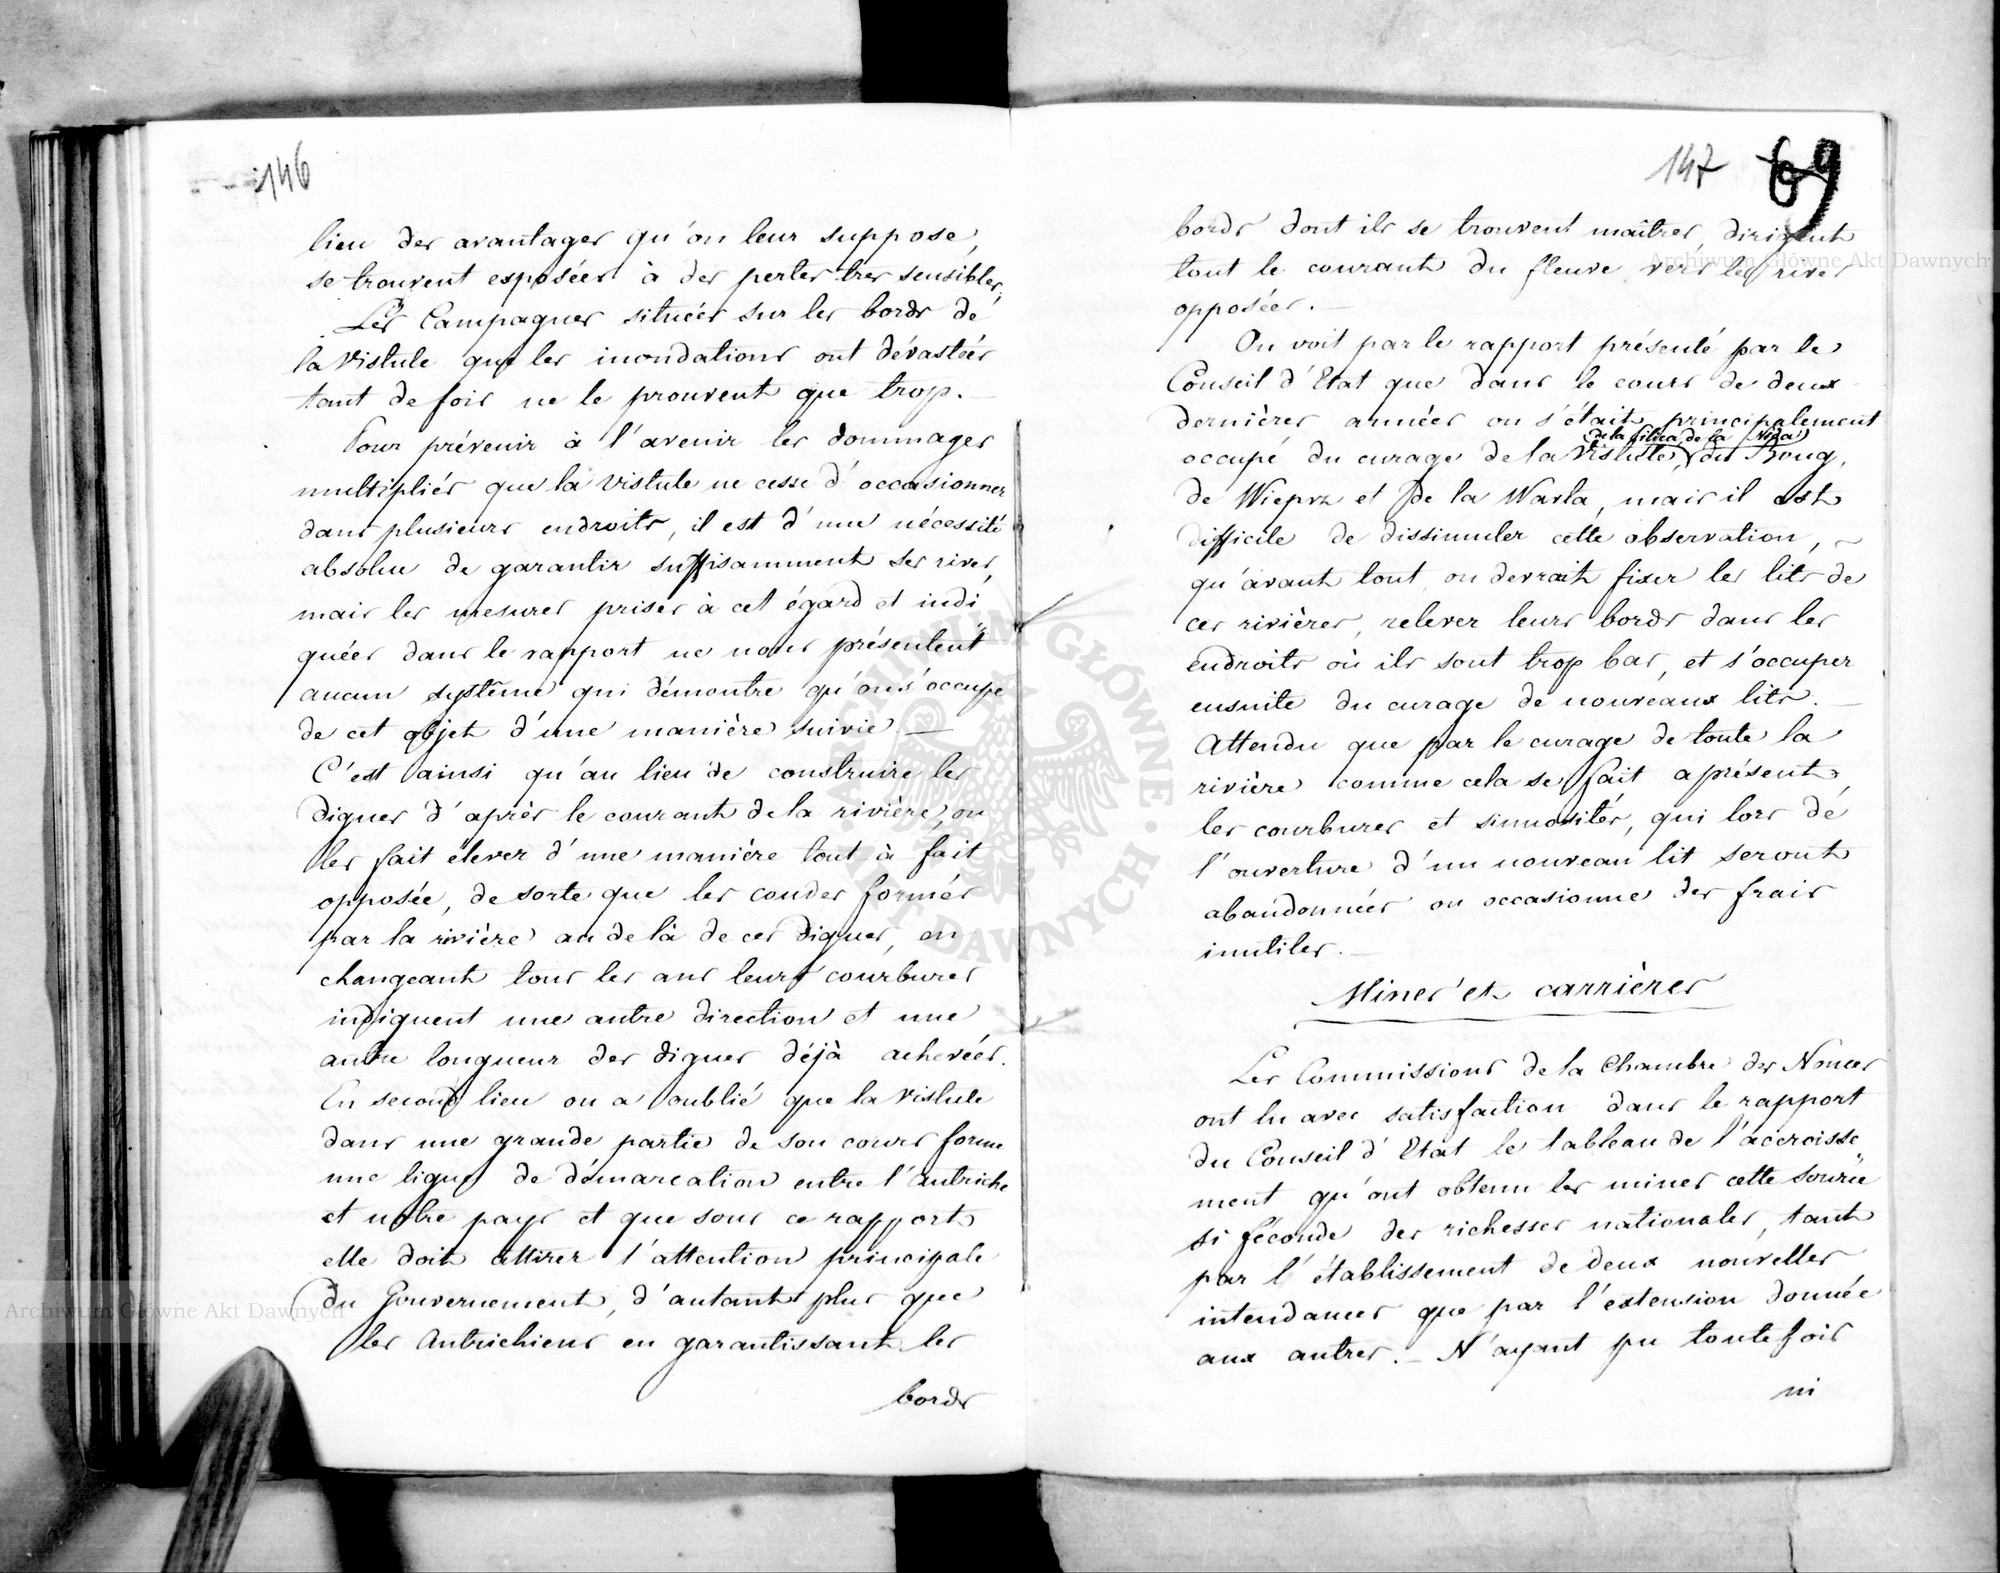 146
lieu des avantages qu'on leur suppose,
se trouvent exposées à des pertes tres sensibles,
Les Campagnes situées sur les bords de
la Vistule que les inondations ont dévastées
tant de fois ne le prouvent que trop. —
Pour prévenir à l'avenir les dommages
multipliés que la Vistule ne cesse d'occasionner
dans plusieurs endroits, il est d'une nécessité
absolue de garantir suffisamment ses rives,
mais les mesures prises à cet égard et indi
quées dans le rapport ne nous présentent
aucun système qui démontre qu'on s'occupe
de cet objet d'une manière suivie —
C'est ainsi qu'au lieu de construire les
digues d'après le courant de la rivière, on
les fait élever d'une manière tout à fait
opposée, de sorte que les coudes formés
par la rivière au de là de ces digues, en
changeant tous les ans leurs courbures
indiquent une autre direction et une
autre longueur des digues déjà achevées.
En second lieu on a oublié que la Vistule
dans une grande partie de son cours forme
une ligne de démarcation entre l'Autriche
et notre pays et que sous ce rapport
elle doit attirer l'attention principale
du Gouvernement, d'autant plus que
les Autrichiens en garantissant les
bords
147 69
bords dont ils se trouvent maîtres, dirigent
tout le courant du fleuve vers les rives
opposées. —
On voit par le rapport présenté par le
Conseil d'Etat que dans le cours de deux
dernières années on s'était principalement
(de la Pilica, de la Nida)
occupé du curage de la Vistule, du Boug,
de Wieprz et de la Warta, mais il est
difficile de dissimuler cette observation, ~
qu'avant tout on devrait fixer les lits de
ces rivières, relever leurs bords dans les
endroits où ils sont trop bas, et s'occuper
ensuite du curage de nouveaux lits. —
Attendu que par le curage de toute la
rivière comme cela se fait aprésent
les courbures et sinuosités, qui lors de
l'ouverture d'un nouveau lit seront
abandonnées on occasionne des frais
inutiles. —
Mines et carrières
Les Commissions de la Chambre des Nonces
ont lu avec satisfaction dans le rapport
du Conseil d'Etat le tableau de l'accroisse
ment qu'ont obtenu les mines cette source
si féconde des richesses nationales, tant
par l'établissement de deux nouvelles
intendances que par l'extension donnée
aux autres. — N'ayant pu toutefois
ni
Archiwum Główne Akt Dawnych
Archiwum Główne Akt Dawnych
ARCHIWUM GŁÓWNE AKT DAWNYCH